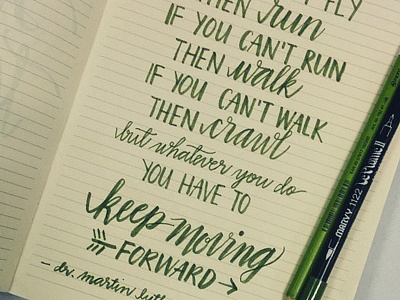 FLY
THEN run
IF YOU CAN'T RUN
THEN walk
IF YOU CAN'T WALK
THEN crawl
but whatever you do
YOU HAVE TO
keep moving
FORWARD →
- dr. martin luth
MARVY 1122 Le Plume II